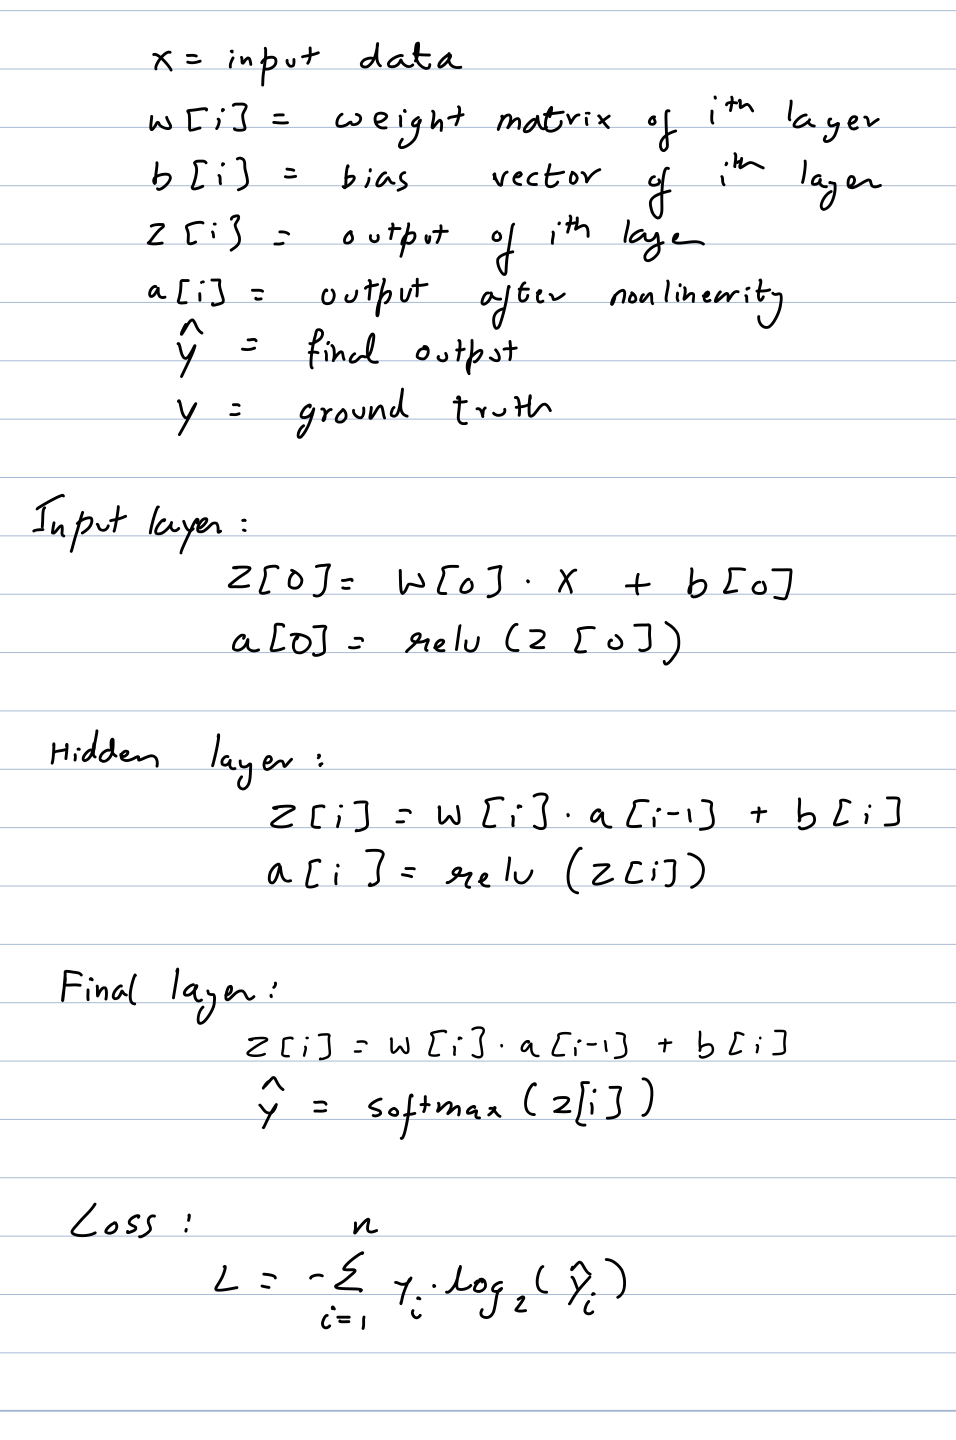 x = input data
w[i] = weight matrix of ith layer
b[i] = bias vector of ith layer
z[i] = output of ith layer
a[i] = output after nonlinearity
ŷ = final output
y = ground truth
Input layer:
z[0] = w[0] · x + b[0]
a[0] = relu(z[0])
Hidden layer:
z[i] = w[i] · a[i-1] + b[i]
a[i] = relu(z[i])
Final layer:
z[i] = w[i] · a[i-1] + b[i]
ŷ = softmax(z[i])
Loss:
L = -∑ⁿᵢ₌₁ yᵢ · log₂(ŷᵢ)